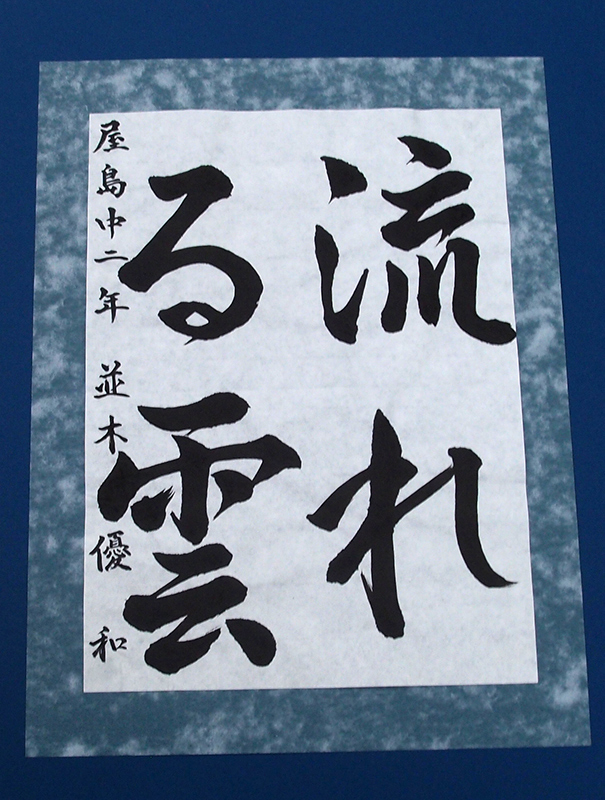 流れ
る雲
屋島中二年 並木優和